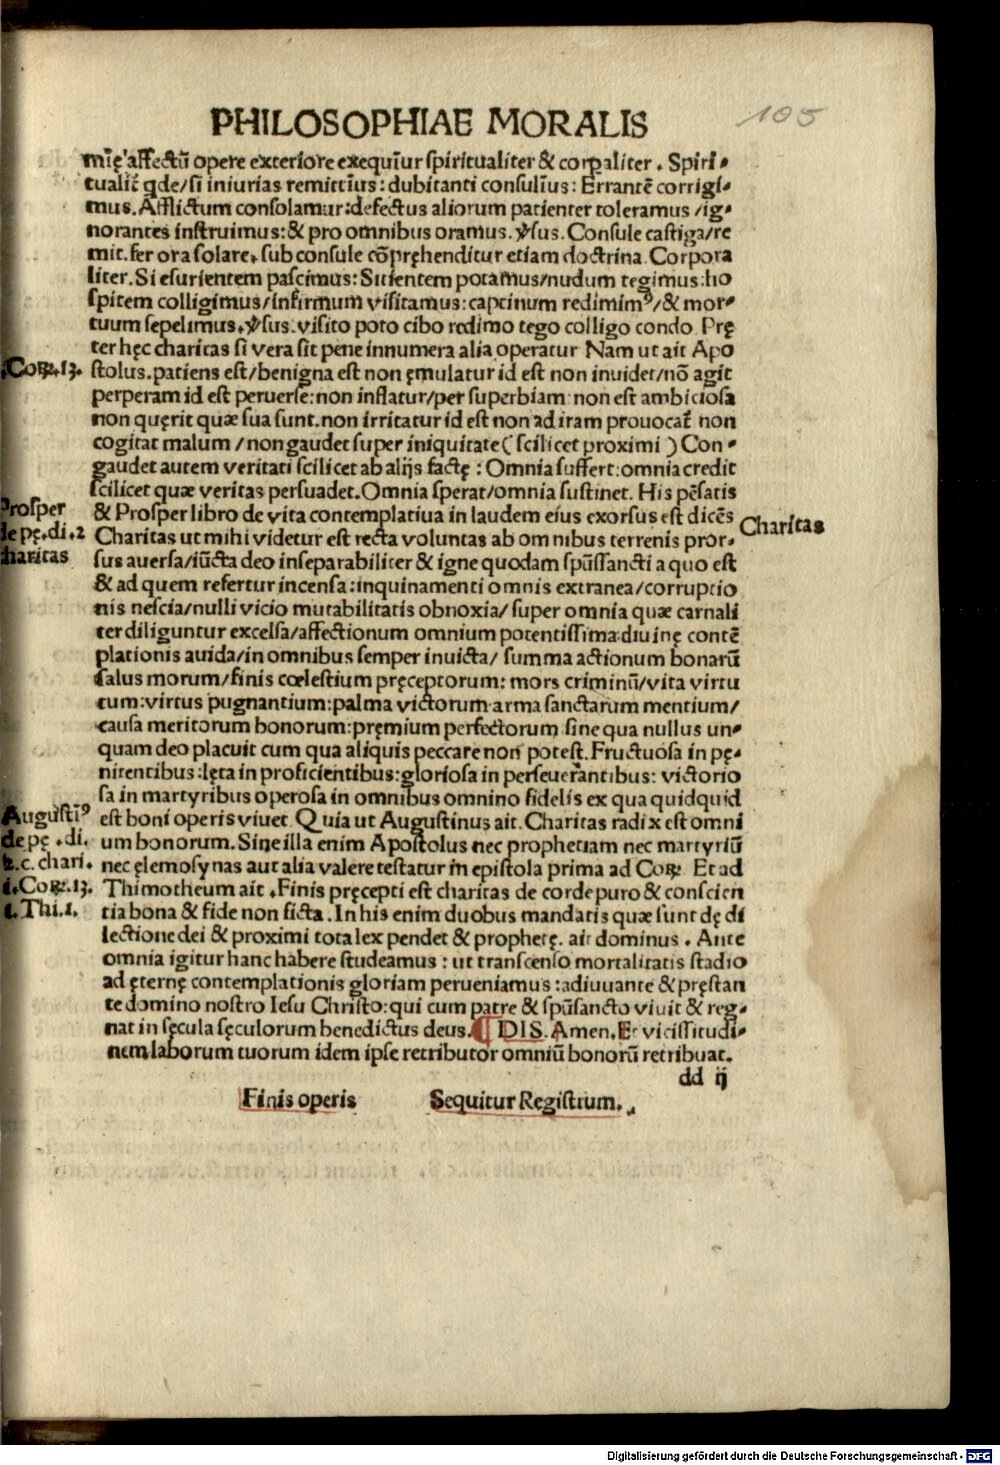 PHILOSOPHIAE MORALIS
105
mīę affectū opere exteriore exequīur spiritualiter & corꝑaliter . Spiri-
tualiꝰ qde/si iniurias remittīus : dubitanti consulīus : Errantē corrigi-
mus. Afflictum consolamur: defectus aliorum patienter toleramus /ig-
norantes instruimus: & pro omnibus oramus. ℣sus. Consule castiga/re
mit. fer ora solare. sub consule cōpręhenditur etiam doctrina. Corpora
liter. Si esurientem pascimus: Sitientem potamus/nudum tegimus: ho
spitem colligimus/infirmum visitamus: captinum redimimꝰ/& mor-
tuum sepelimus. ℣sus. visito poto cibo redimo tego colligo condo. Prę
ter hęc charitas si vera sit pene innumera alia operatur Nam ut ait Apo
.Coꝝ.13. stolus. patiens est/benigna est non ęmulatur id est non inuidet/nō agit
perperam id est peruerse: non inflatur/per superbiam. non est ambiciosa
non quęrit quæ sua sunt. non irritatur id est non ad iram prouocat̄ non
cogitat malum / non gaudet super iniquitate ( scilicet proximi ) Con-
gaudet autem veritati scilicet ab alijs factę : Omnia suffert: omnia credit
scilicet quæ veritas persuadet. Omnia sperat/omnia sustinet. His pēsatis
Prosper & Prosper libro de vita contemplatiua in laudem eius exorsus est dicēs Charitas
de pę.di.2 Charitas ut mihi videtur est recta voluntas ab om nibus terrenis pror-
charitas sus auersa/iūcta deo inseparabiliter & igne quodam spūssancti a quo est
& ad quem refertur incensa : inquinamenti omnis extranea/corruptio
nis nescia/nulli vicio mutabilitatis obnoxia/ super omnia quæ carnali
ter diliguntur excelsa/affectionum omnium potentissima: diuinę contē
plationis auida/in omnibus semper inuicta/ summa actionum bonarū
salus morum/finis cœlestium pręceptorum: mors criminū/vita virtu
tum: virtus pugnantium: palma victorum. arma sanctarum mentium/
causa meritorum bonorum: pręmium perfectorum sine qua nullus un-
quam deo placuit cum qua aliquis peccare non potest. Fructuosa in pę-
nitentibus: lęta in proficientibus: gloriosa in perseuerantibus: victorio
sa in martyribus operosa in omnibus omnino fidelis ex qua quidquid
Augustīꝰ est boni operis viuet. Quia ut Augustinus ait. Charitas radix est omni
de pę .di. um bonorum. Sine illa enim Apostolus nec prophetiam nec martyriū
2.c. chari. nec ęlemosynas aut alia valere testatur in epistola prima ad Coꝝ. Et ad
i.Coꝝ.13. Thimotheum ait . Finis pręcepti est charitas de corde puro & conscien
i.Thi.i. tia bona & fide non ficta . In his enim duobus mandatis quæ sunt dę di
lectione dei & proximi tota lex pendet & prophetę. ait dominus . Ante
omnia igitur hanc habere studeamus : ut transcenso mortalitatis stadio
ad ęternę contemplationis gloriam perueniamus : adiuuante & pręstan
te domino nostro Iesu Christo: qui cum patre & spūsancto viuit & reg-
nat in sęcula sęculorum benedictus deus. ¶ DIS. Amen. Et vicissitudi-
nem laborum tuorum idem ipse retributor omniū bonorū retribuat.
dd ij
Finis operis Sequitur Registrum.
Digitalisierung gefördert durch die Deutsche Forschungsgemeinschaft - DFG